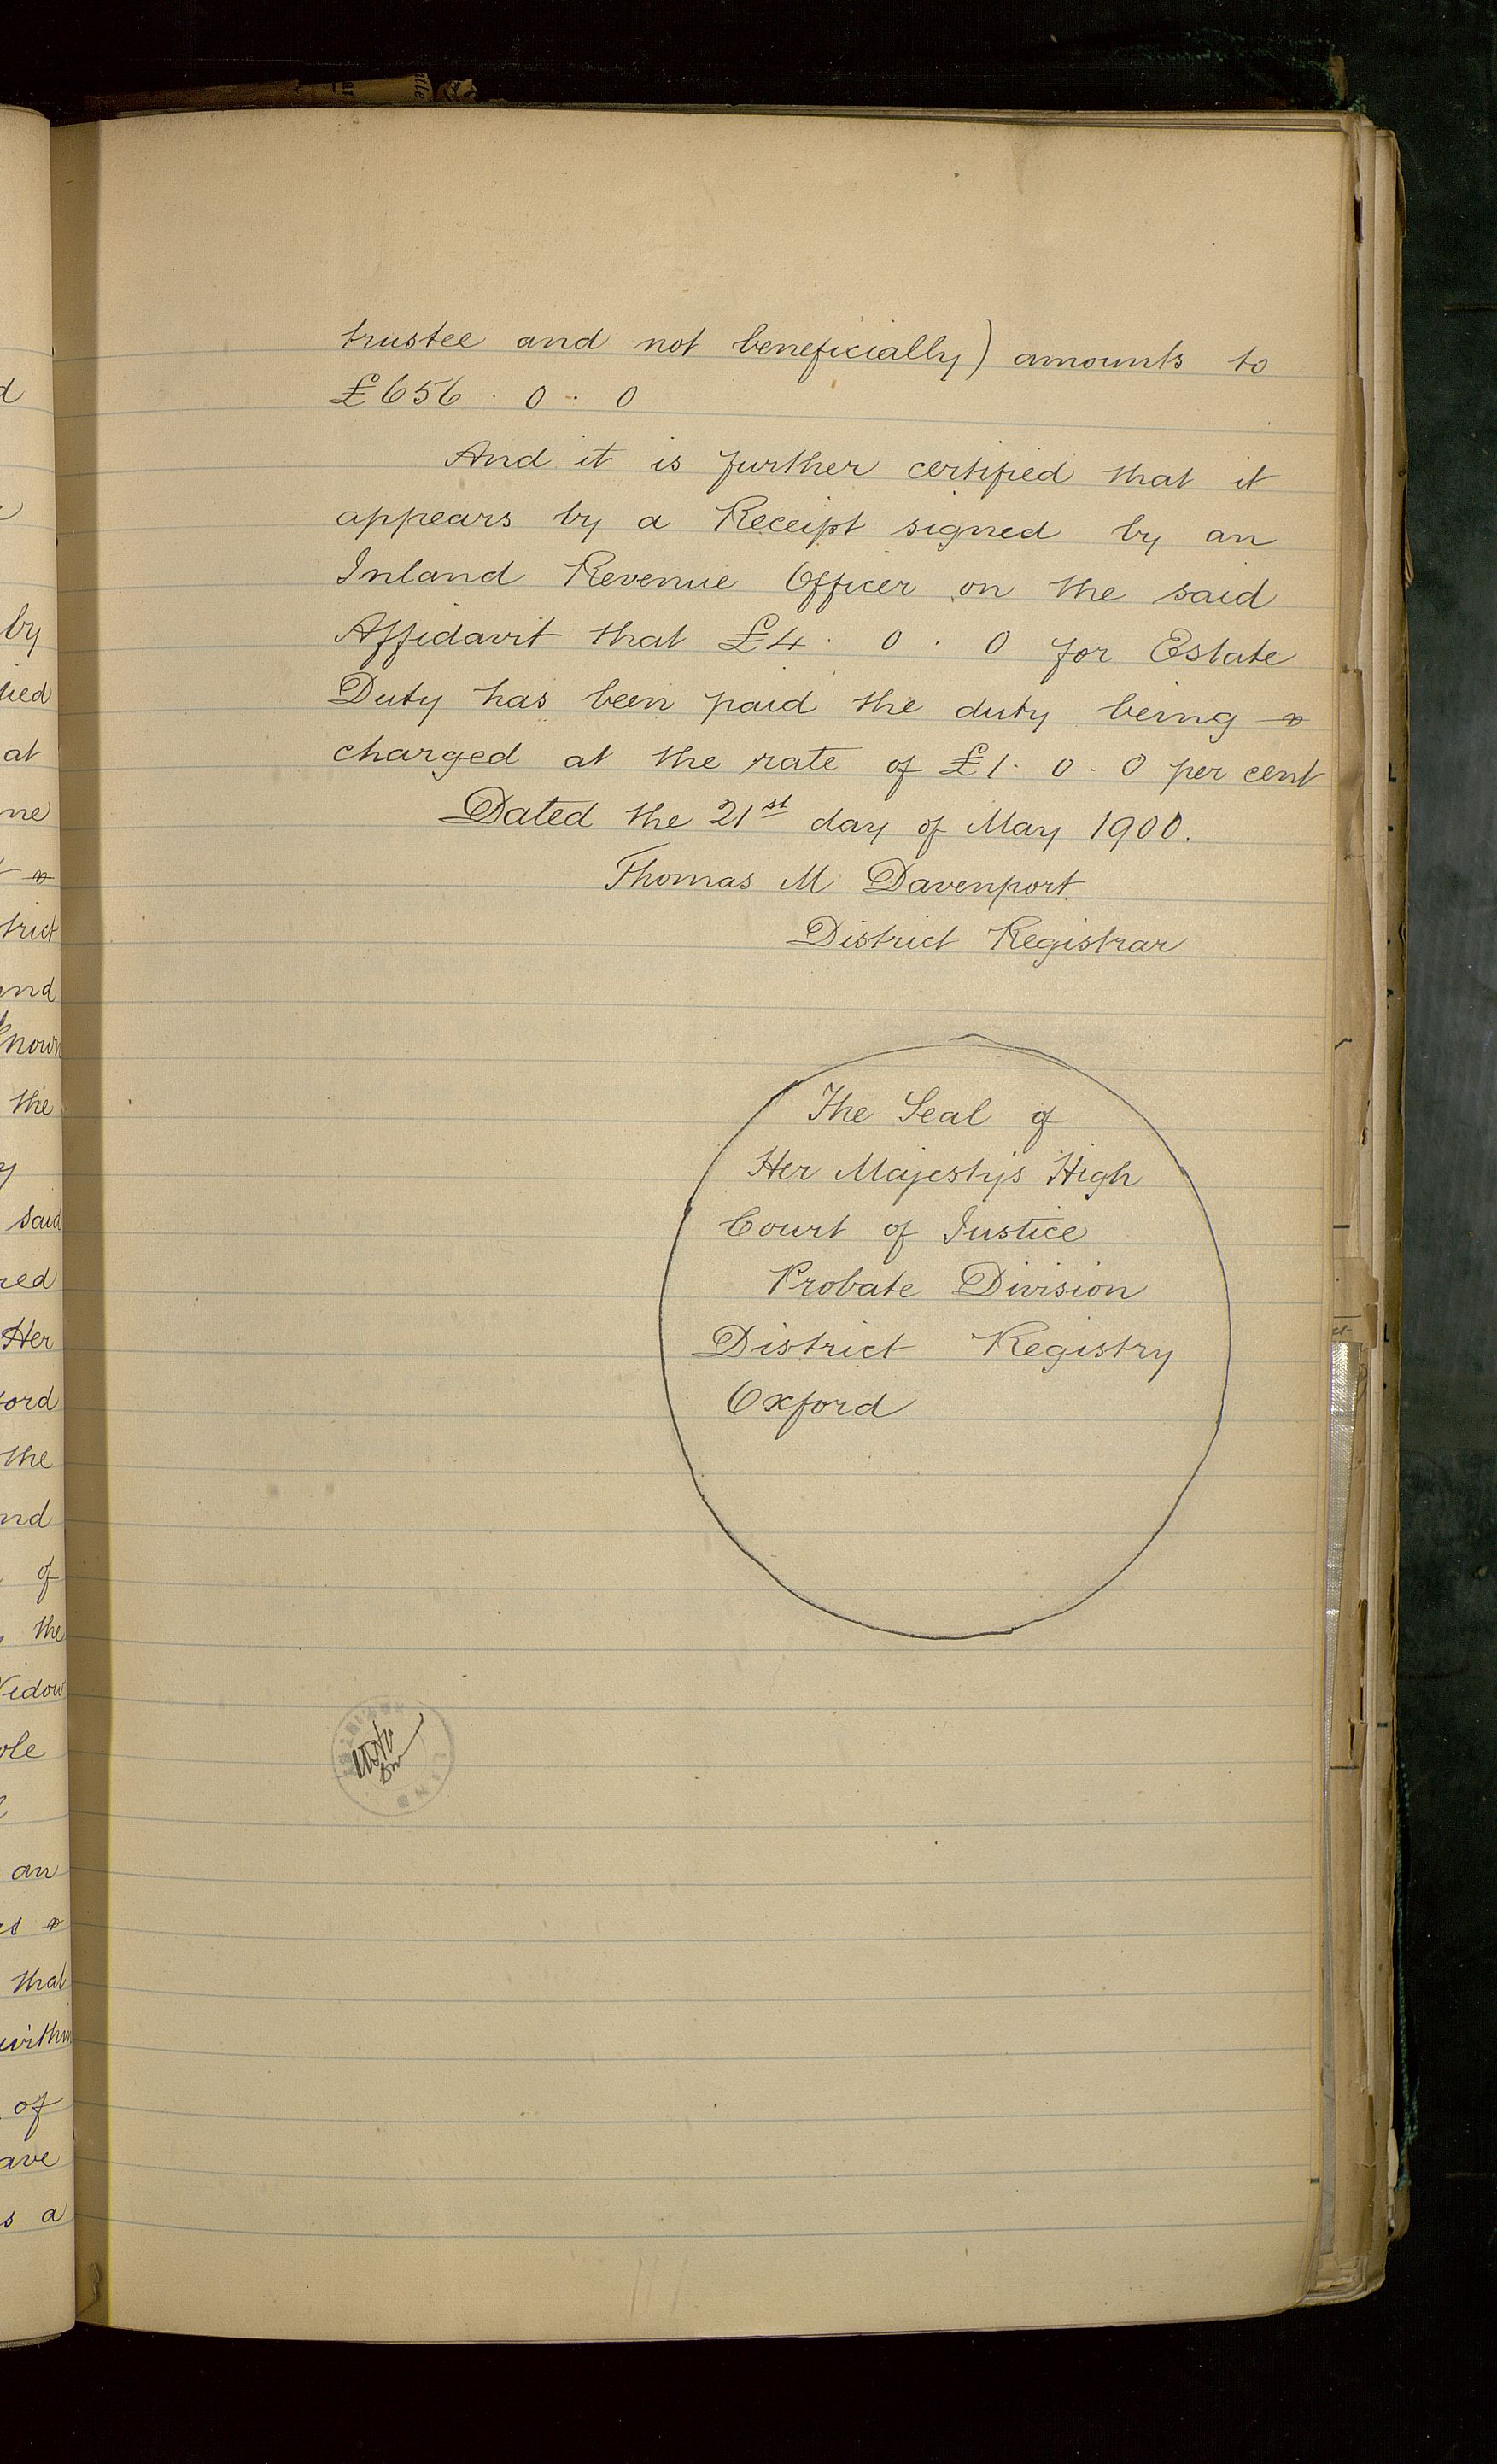 trustee and not beneficially) amounts to
£656 . 0 . 0
And it is further certified that it
appears by a Receipt signed by an
Inland Revenue Officer on the said
Affidavit that £4 . 0 . 0 for Estate
Duty has been paid the duty being
charged at the rate of £1 . 0 . 0 per cent
Dated the 21st day of May 1900.
Thomas M Davenport
District Registrar
The Seal of
Her Majesty's High
Court of Justice
Probate Division
District Registry
Oxford
by
at
the
said
Her
the
of
the
an
that
of
a